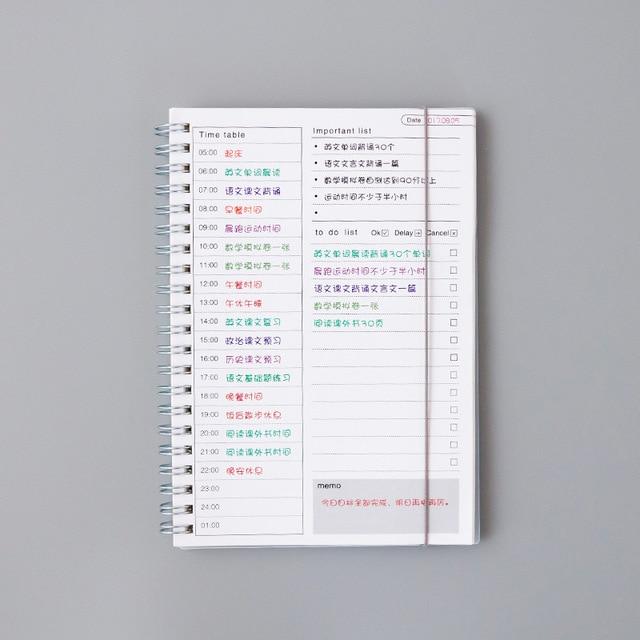 Date 2017.09.05
Time table
05:00 起床
06:00 英文单词晨读
07:00 语文课文背诵
08:00 早餐时间
09:00 晨跑运动时间
10:00 数学模拟卷一张
11:00 数学模拟卷一张
12:00 午餐时间
13:00 午休午睡
14:00 英文课文复习
15:00 政治课文预习
16:00 历史课文预习
17:00 语文基础题练习
18:00 晚餐时间
19:00 饭后散步休息
20:00 阅读课外书时间
21:00 阅读课外书时间
22:00 晚安休息
23:00
24:00
01:00
Important list
• 英文单词背诵30个
• 语文文言文背诵一篇
• 数学模拟卷自测达到90分以上
• 运动时间不少于半小时
•
to do list Ok Delay Cancel
英文单词晨读背诵30个单词
晨跑运动时间不少于半小时
语文课文背诵文言文一篇
数学模拟卷一张
阅读课外书30页
memo
今日目标全部完成，明日再接再厉。